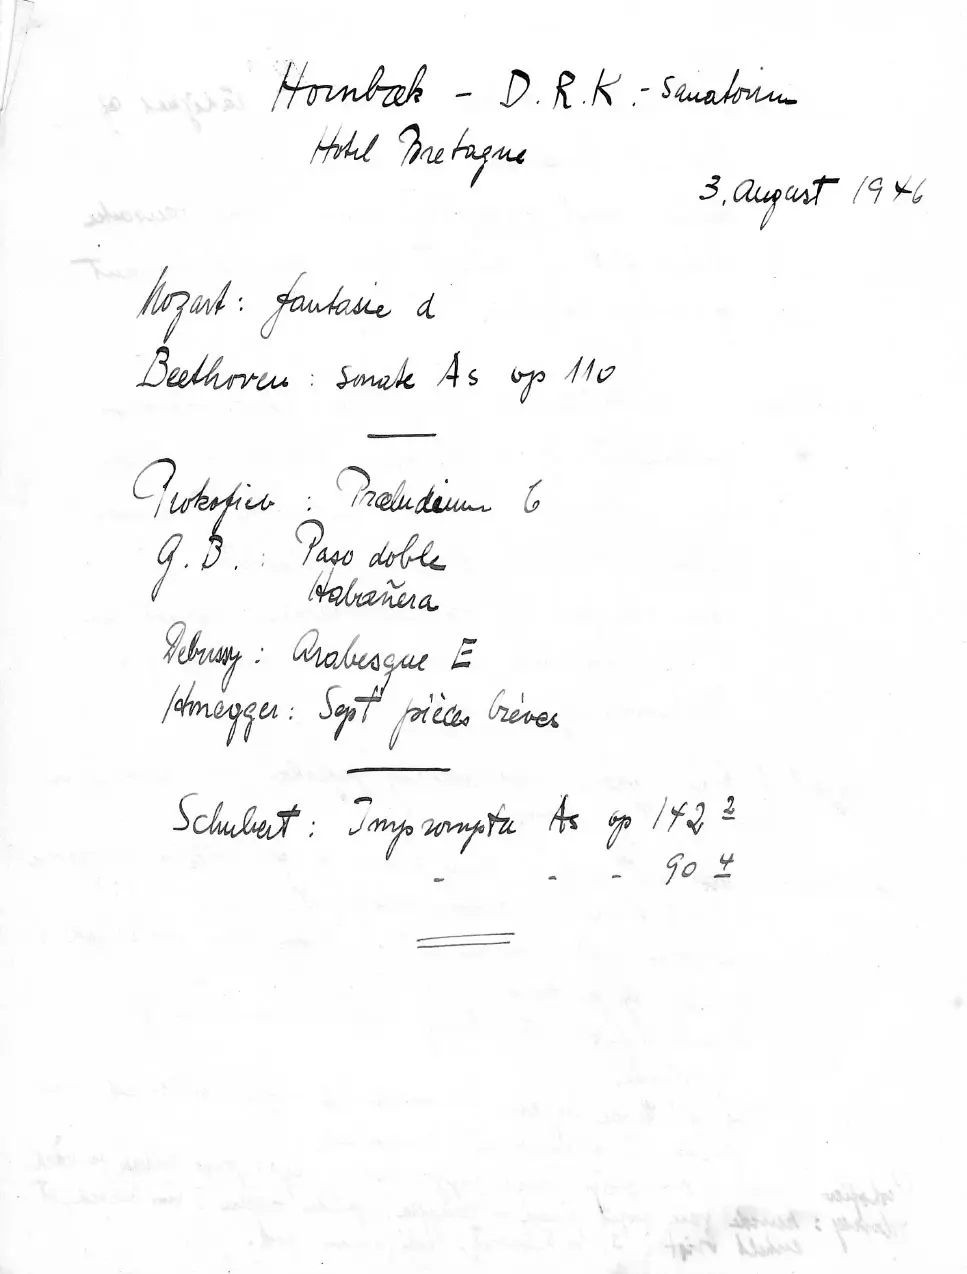 Hornbæk - D.R.K.- Sanatorium
Hotel Bretagne
3. August 1946
Mozart: fantasie d
Beethoven: sonate As op 110
Prokofiev: Præludium C
G.B.: Paso doble
Habañera
Debussy: Arabesque E
Honegger: Sept pièces brèves
Schubert: Impromptu As op 142 2
- - - 90 4